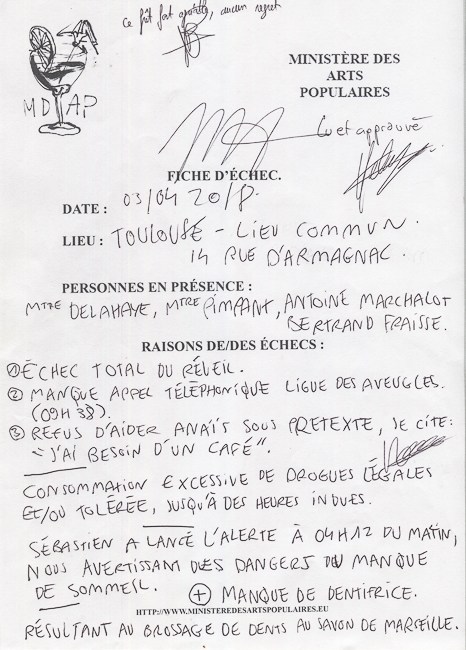 Ce fût fort agréable, aucun regret
MD AP
MINISTÈRE DES
ARTS
POPULAIRES
Lu et approuvé
FICHE D'ÉCHEC.
DATE : 03/04 2018.
LIEU : TOULOUSE - LIEU COMMUN.
14 RUE D'ARMAGNAC.
PERSONNES EN PRÉSENCE :
MTRE DELAHAYE, MTRE PIMPANT, ANTOINE MARCHALOT
BERTRAND FRAISSE.
RAISONS DE/DES ÉCHECS :
① ÉCHEC TOTAL DU RÉVEIL.
② MANQUE APPEL TÉLÉPHONIQUE LIGUE DES AVEUGLES.
(09H38).
③ REFUS D'AIDER ANAÏS SOUS PRETEXTE, JE CITE:
"J'AI BESOIN D'UN CAFÉ".
CONSOMMATION EXCESSIVE DE DROGUES LÉGALES
ET/OU TOLÉRÉE, JUSQU'À DES HEURES INDUES.
SÉBASTIEN A LANCÉ L'ALERTE À 04H12 DU MATIN,
NOUS AVERTISSANT DES DANGERS DU MANQUE
DE SOMMEIL. + MANQUE DE DENTIFRICE.
HTTP://WWW.MINISTEREDESARTSPOPULAIRES.EU
RÉSULTANT AU BROSSAGE DE DENTS AU SAVON DE MARSEILLE.